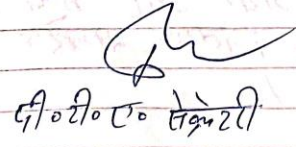 पी०टी०ए० सेक्रेटरी